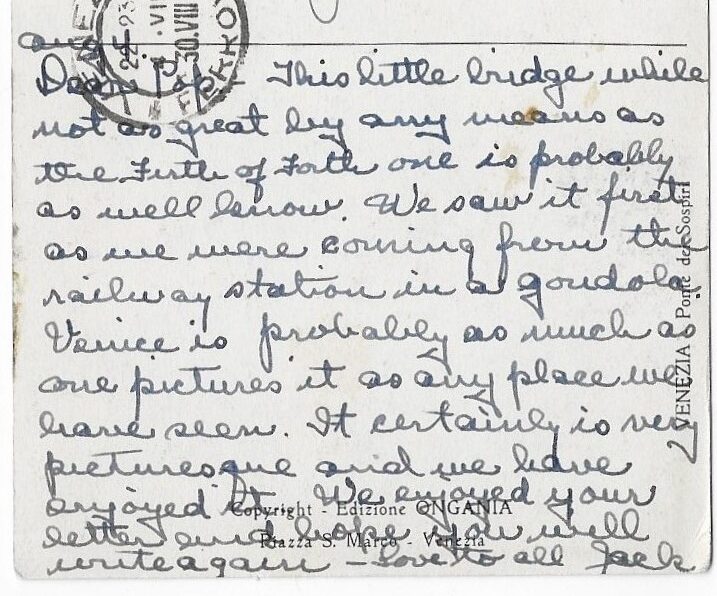 Dear - This little bridge while
not as great by any means as
the Firth of Forth one is probably
as well know. We saw it first
as we were coming from the
railway station in a gondola.
Venice is probably as much as
one pictures it as any place we
have seen. It certainly is very
picturesque and we have
enjoyed it. We enjoyed your
letter and hope you will
write again - Love to all Jack
Copyright - Edizione ONGANIA
Piazza S. Marco - Venezia
VENEZIA Ponte dei Sospiri
30.VIII